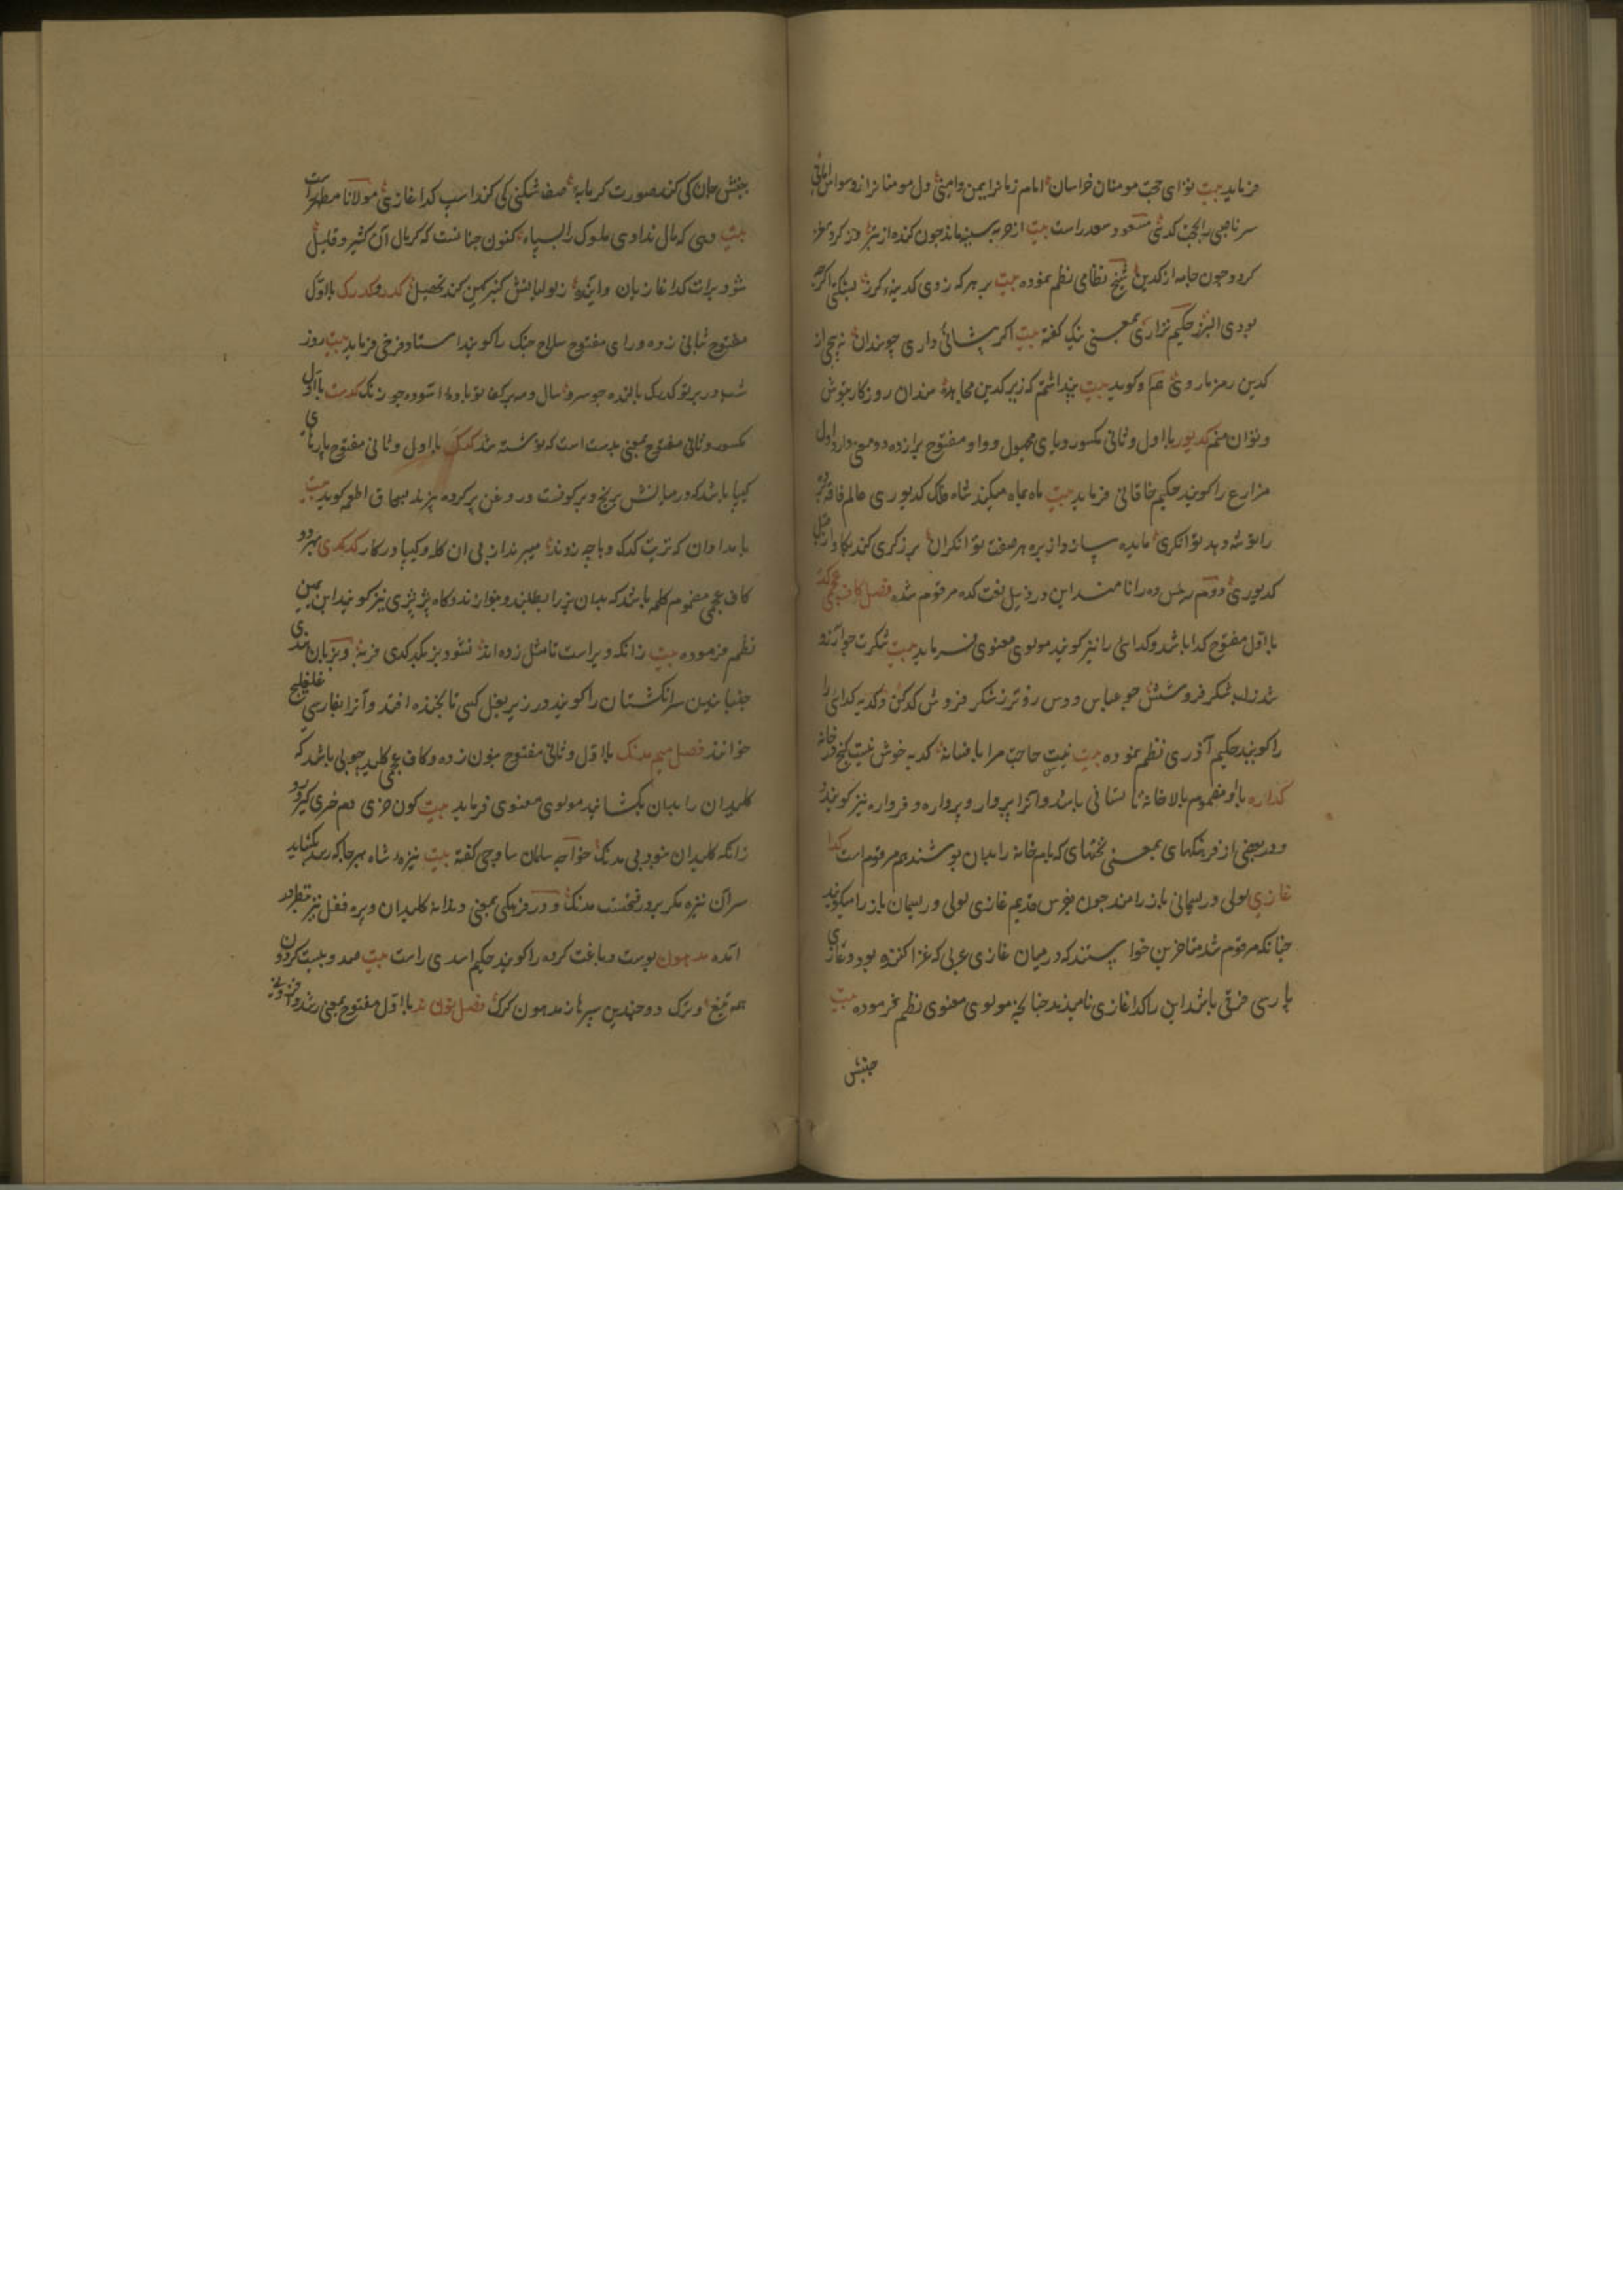 فرماید بیت توای حجت مومنان خراسان امام زمانرا یمین وامینی دل مومنانرا ز وسواس امانی
سر ناصبی را بحجت کدینی مسعود سعد راست بیت از حربه سینه ماند چون کنده از تبر وز کرز مغز
کرد و چون جامه از کدین شیخ نظامی نظم نموده بیت بر هرکه زدی کدینه کرز بشکستی اکرچه
بودی البرز حکیم نزاری بمعنی نیک کفته بیت اکر پیشانئی داری چو سندان نپیچی از
کدین رمز بار وئی هم او کوید بیت پنداشتم که زیر کدین مجاهده سندان روزکار بتوش
وتوان منم کدیور با اول وثانی مکسور ویای مجهول وواو مفتوح برازده دو معنی دارد اول
مزارع را کویند حکیم خاقانی فرماید بیت ماه بماه میکند شاه فلک کدیوری عالم فاقه برده
را توشه دهد توانکری
کدیوری دوم رئیس ده را نامند این در ذیل لغت کده مرقوم شده فصل کاف عجمی کد
با اول مفتوح کدا باشد وکدائی را نیز کویند مولوی معنوی فرماید بیت شکرت چو آرزو
شد زلب شکر فروشش چو عباس و دوس رو ترز شکر فروش کد کن وکدیه کدائی را
را کویند حکیم آذری نظم نموده بیت نیست حاجت مرا بافسانه کدیه خوش نیست کنج در خانه
کداره با و مضموم بالاخانه تابستانی باشد وآنرا پروار و پرواره و فرواره نیز کویند
ودر بعضی از فرهنکهای بمعنی تختهای که بام خانه را بدان پوشند هم مرقوم است کدا
غازی لولی و ریسمانی باز را مند چون بفرس قدیم غازی لولی و ریسمان باز را میکویند
چنانکه مرقوم شد متاخرین خواستند که در میان غازی عربی که غزا کننده بود و غازی
پارسی فرقی باشد این را کدا غازی نامیدند چنانچه مولوی معنوی نظم فرموده بیت
جنبش
جنبش جان کی کند صورت کرمابه صف شکنی کی کند اسپ کدا غازی مولانا مطهر راست
بیت دمی که مال نداوی ملوک را بسپاه کنون چنانست که کرمال آن کثیر و قلیل
شود برات کدا غازیان
مفتوح بثانی زده ورای مفتوح سلاح جنک را کویند استاد فرخی فرماید بیت روز
کدست با اول
مکسور وثانی مفتوح بمعنی بدست است که نوشته شد کدک با اول وثانی مفتوح پاره‌ای
کیپا باشد که در میانش برنج و پر کوشت و روغن پر کرده بپزند بسحاق اطعمه کوید بیت
بامدادان که ترتیب کدک وپاچه زدند میبرند از پی ان کله وکیپا در کار کدکدی بهر دو
کاف عجمی مضموم کلمه باشد که بدان بز را بطلبند وبنوازند وکاه پژ پژی نیز کویند ابن یمین
نظم فرموده بیت زانکه ویراست تا مثل زده اند نشود بز بکدکدی فربه وبزبان هندی
جنبانیدن سر انکشتان را کویند در زیر بغل کسی تا بخنده افتد وآنرا بفارسی غلغلیج
خوانند فصل میم مدنک با اول وثانی مفتوح بنون زده وکاف عجمی کلید چوبی باشد که
کلیدان را بدان بکشایند مولوی معنوی فرماید بیت کون خری دم خری کیر و رو
زانکه کلیدان نبود بی مدنک خواجه سلمان ساوجی کفته بیت نیزه شاه بهر جا که رسد بکشاید
سر آن نیزه مکر بر در فتحست مدنک ودر فرهنکی بمعنی دندانه کلیدان و پره قفل نیز بنظر در
آمده مدهون پوست دباغت کرده را کویند حکیم اسدی راست بیت صد و بیست کردون
همه تیغ و ترک دو چندین سپرها ز مدهون کرک فصل نون ند با اول مفتوح بمعنی رشد وافزونی